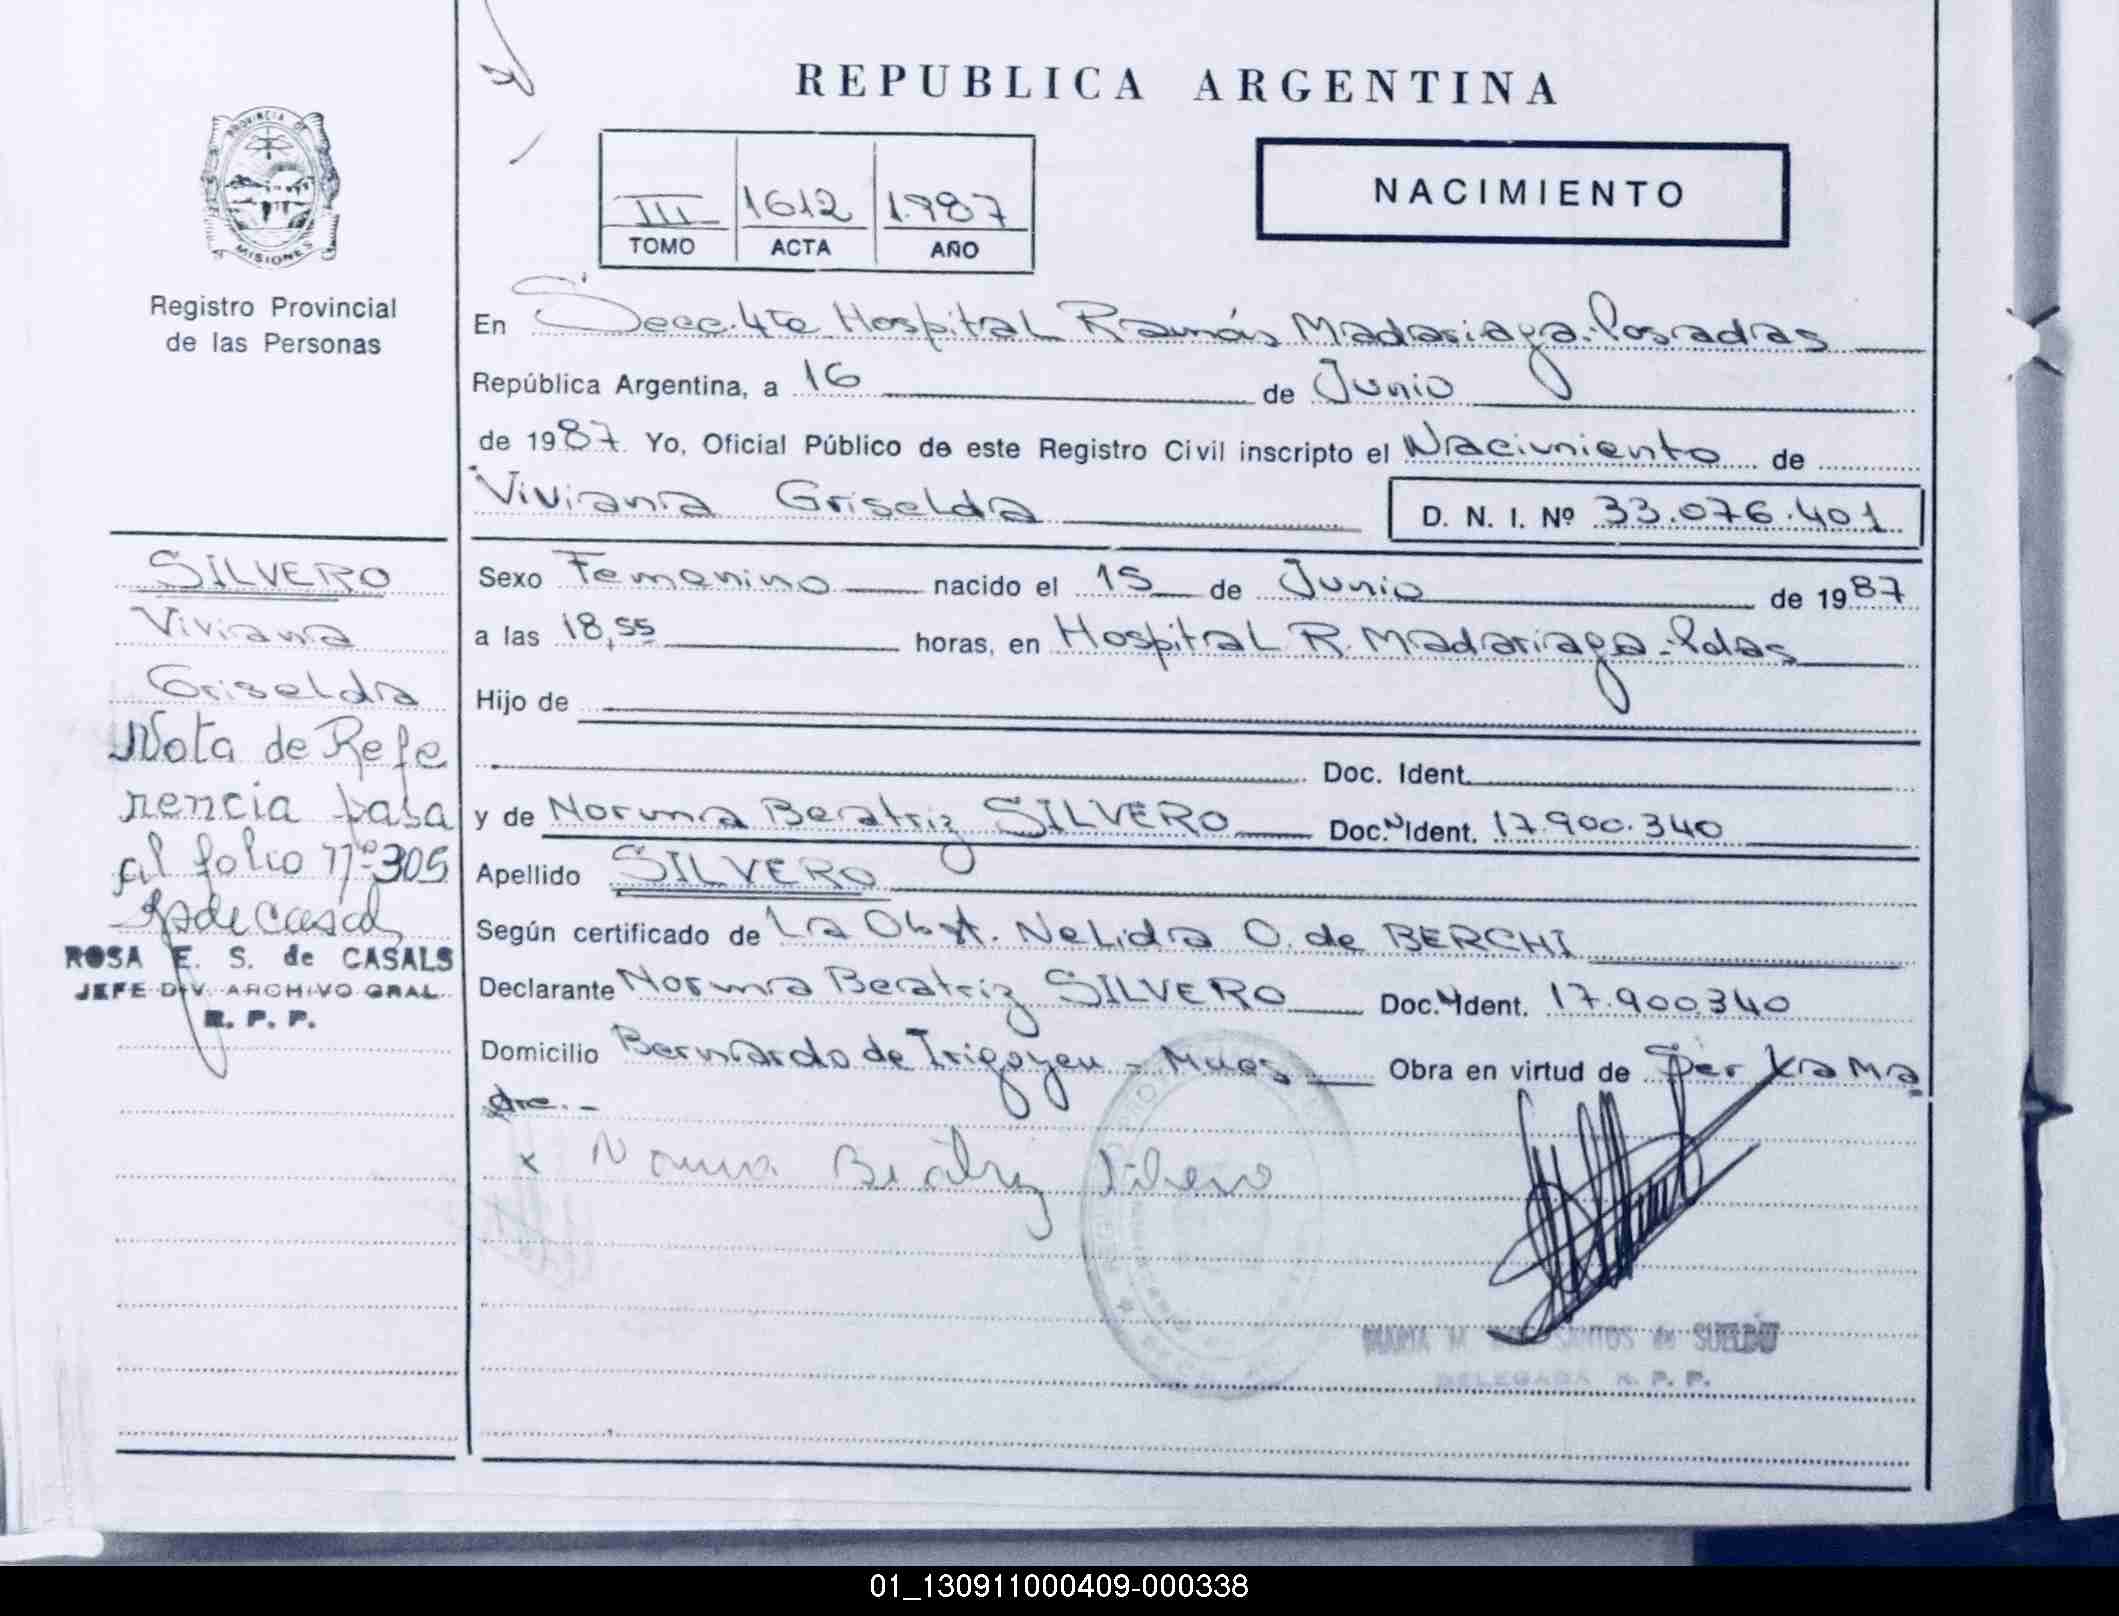 REPUBLICA ARGENTINA
PROVINCIA DE
MISIONES
Registro Provincial
de las Personas
III 1612 1.987
TOMO ACTA AÑO
NACIMIENTO
En Secc. 4ta Hospital Ramón Madariaga - Posadas
República Argentina, a 16 de Junio
de 1987. Yo, Oficial Público de este Registro Civil inscripto el Nacimiento de
Viviana Griselda
D. N. I. Nº 33.076.401
Sexo Femenino nacido el 15 de Junio de 1987
a las 18,55 horas, en Hospital R. Madariaga - Pdas
Hijo de
Doc. Ident.
y de Norma Beatriz SILVERO Doc. Ident. 17.900.340
Apellido SILVERO
Según certificado de La Obst. Nelida O. de BERCHI
Declarante Norma Beatriz SILVERO Doc. Ident. 17.900.340
Domicilio Bernardo de Irigoyen - Mnes Obra en virtud de Ser La Ma
dre.-
x Norma Beatriz Silvero
MARIA M. SANTOS de SUELDO
DELEGADA R. P. P.
SILVERO
Viviana
Griselda
Nota de Refe
rencia pasa
al folio nº 305
ROSA E. S. de CASALS
JEFE DIV. ARCHIVO GRAL.
R. P. P.
01_130911000409-000338